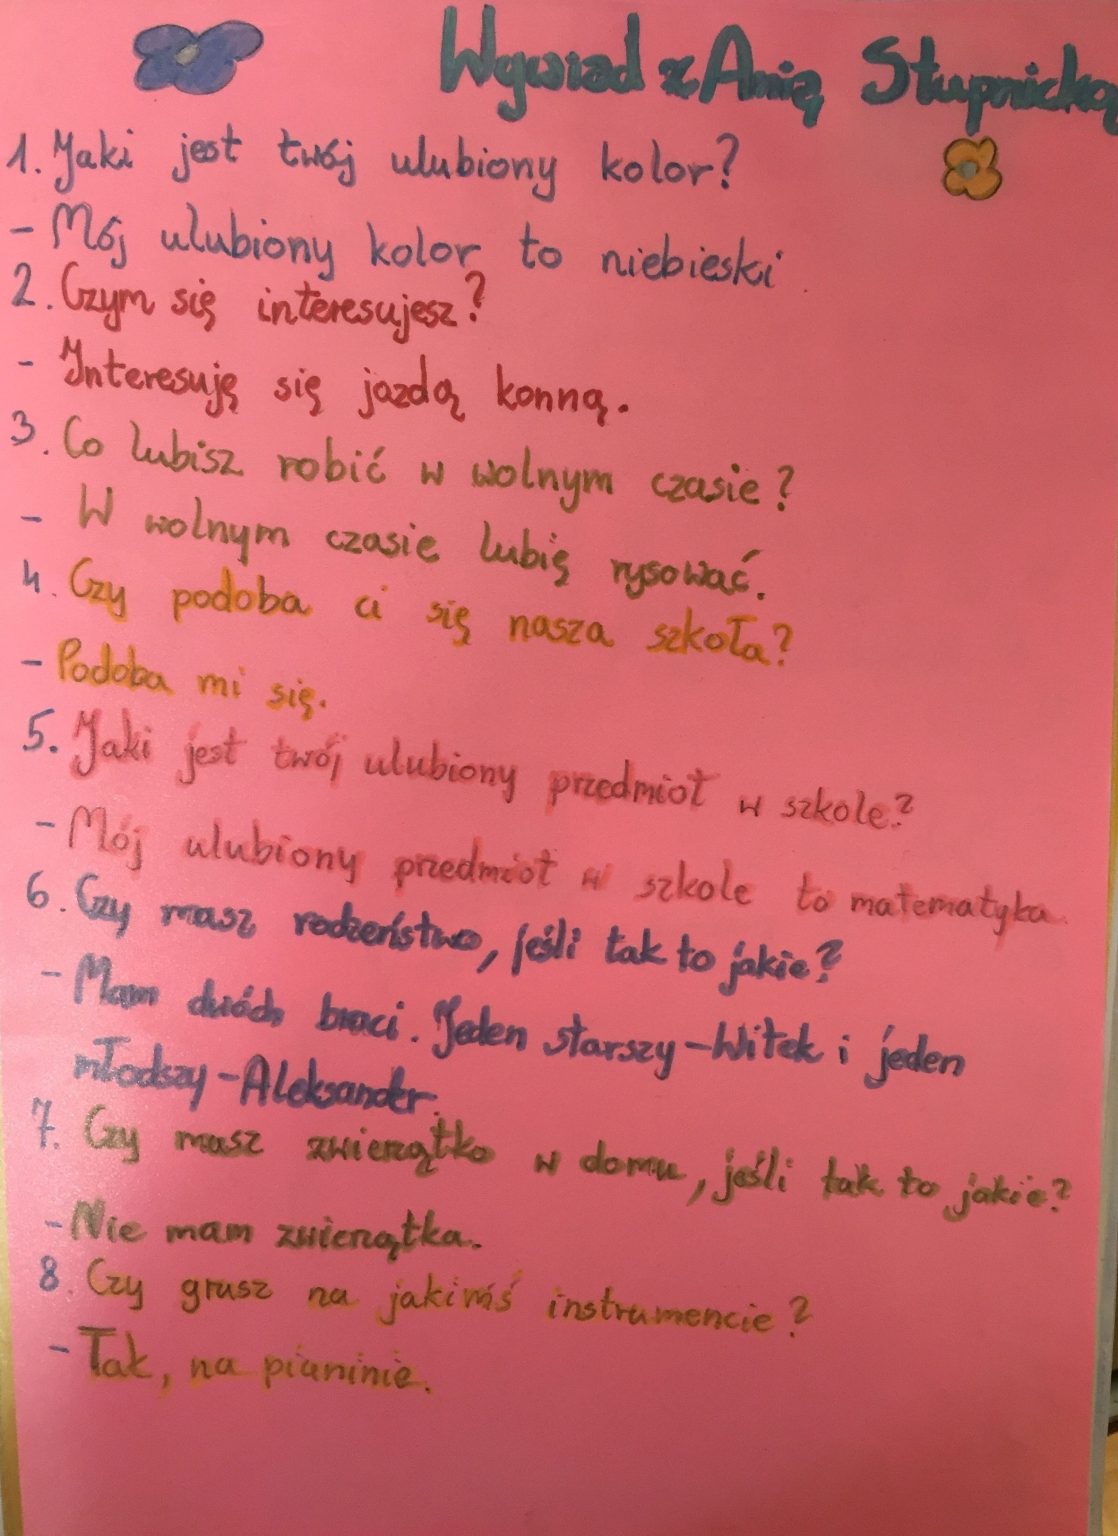 Wywiad z Anią Słupnicką
1. Jaki jest twój ulubiony kolor?
- Mój ulubiony kolor to niebieski.
2. Czym się interesujesz?
- Interesuję się jazdą konną.
3. Co lubisz robić w wolnym czasie?
- W wolnym czasie lubię rysować.
4. Czy podoba ci się nasza szkoła?
- Podoba mi się.
5. Jaki jest twój ulubiony przedmiot w szkole?
- Mój ulubiony przedmiot w szkole to matematyka.
6. Czy masz rodzeństwo, jeśli tak to jakie?
- Mam dwóch braci. Jeden starszy - Witek i jeden
młodszy - Aleksander.
7. Czy masz zwierzątko w domu, jeśli tak to jakie?
- Nie mam zwierzątka.
8. Czy grasz na jakimś instrumencie?
- Tak, na pianinie.